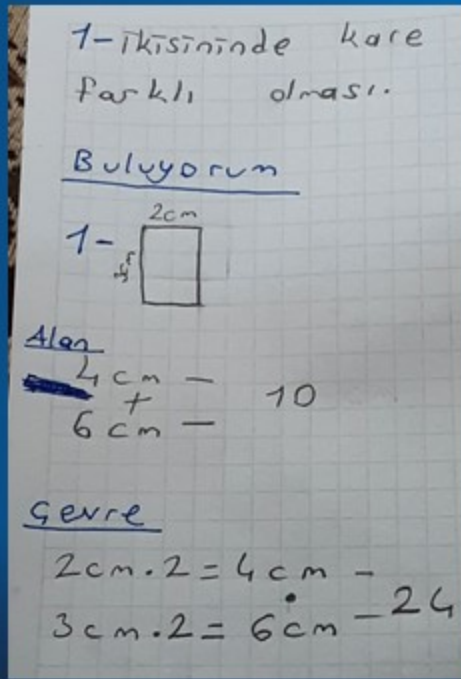 1- ikisininde kare
farklı olması.
Buluyorum
2cm
1-
Alan
4 cm —
+
10
6 cm —
Çevre
2cm.2=4cm —
3cm.2=6cm —24